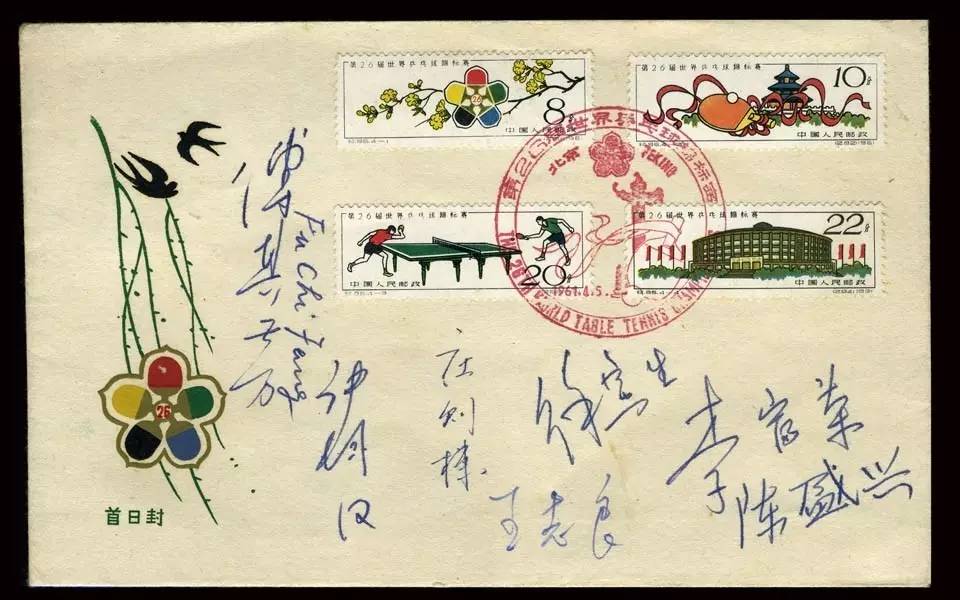 第26届世界乒乓球锦标赛
8分
中国人民邮政
纪86.4-1
第26届世界乒乓球锦标赛
10分
中国人民邮政
第26届世界乒乓球锦标赛
20分
中国人民邮政
纪86.4-3
第26届世界乒乓球锦标赛
22分
中国人民邮政
第26届世界乒乓球锦标赛
北京 PEKING
1961.4.5.
THE 26TH WORLD TABLE TENNIS
傅其芳
Fu Chi Fang
庄则栋
徐寅生
王志良
李富荣
陈盛兴
26
首日封